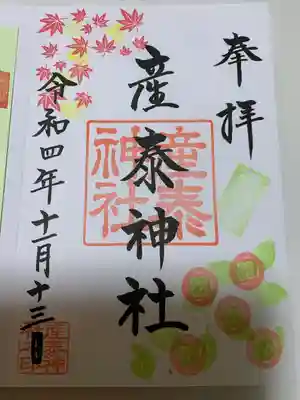 奉拝
産泰神社
産泰神社
令和四年十一月十三日